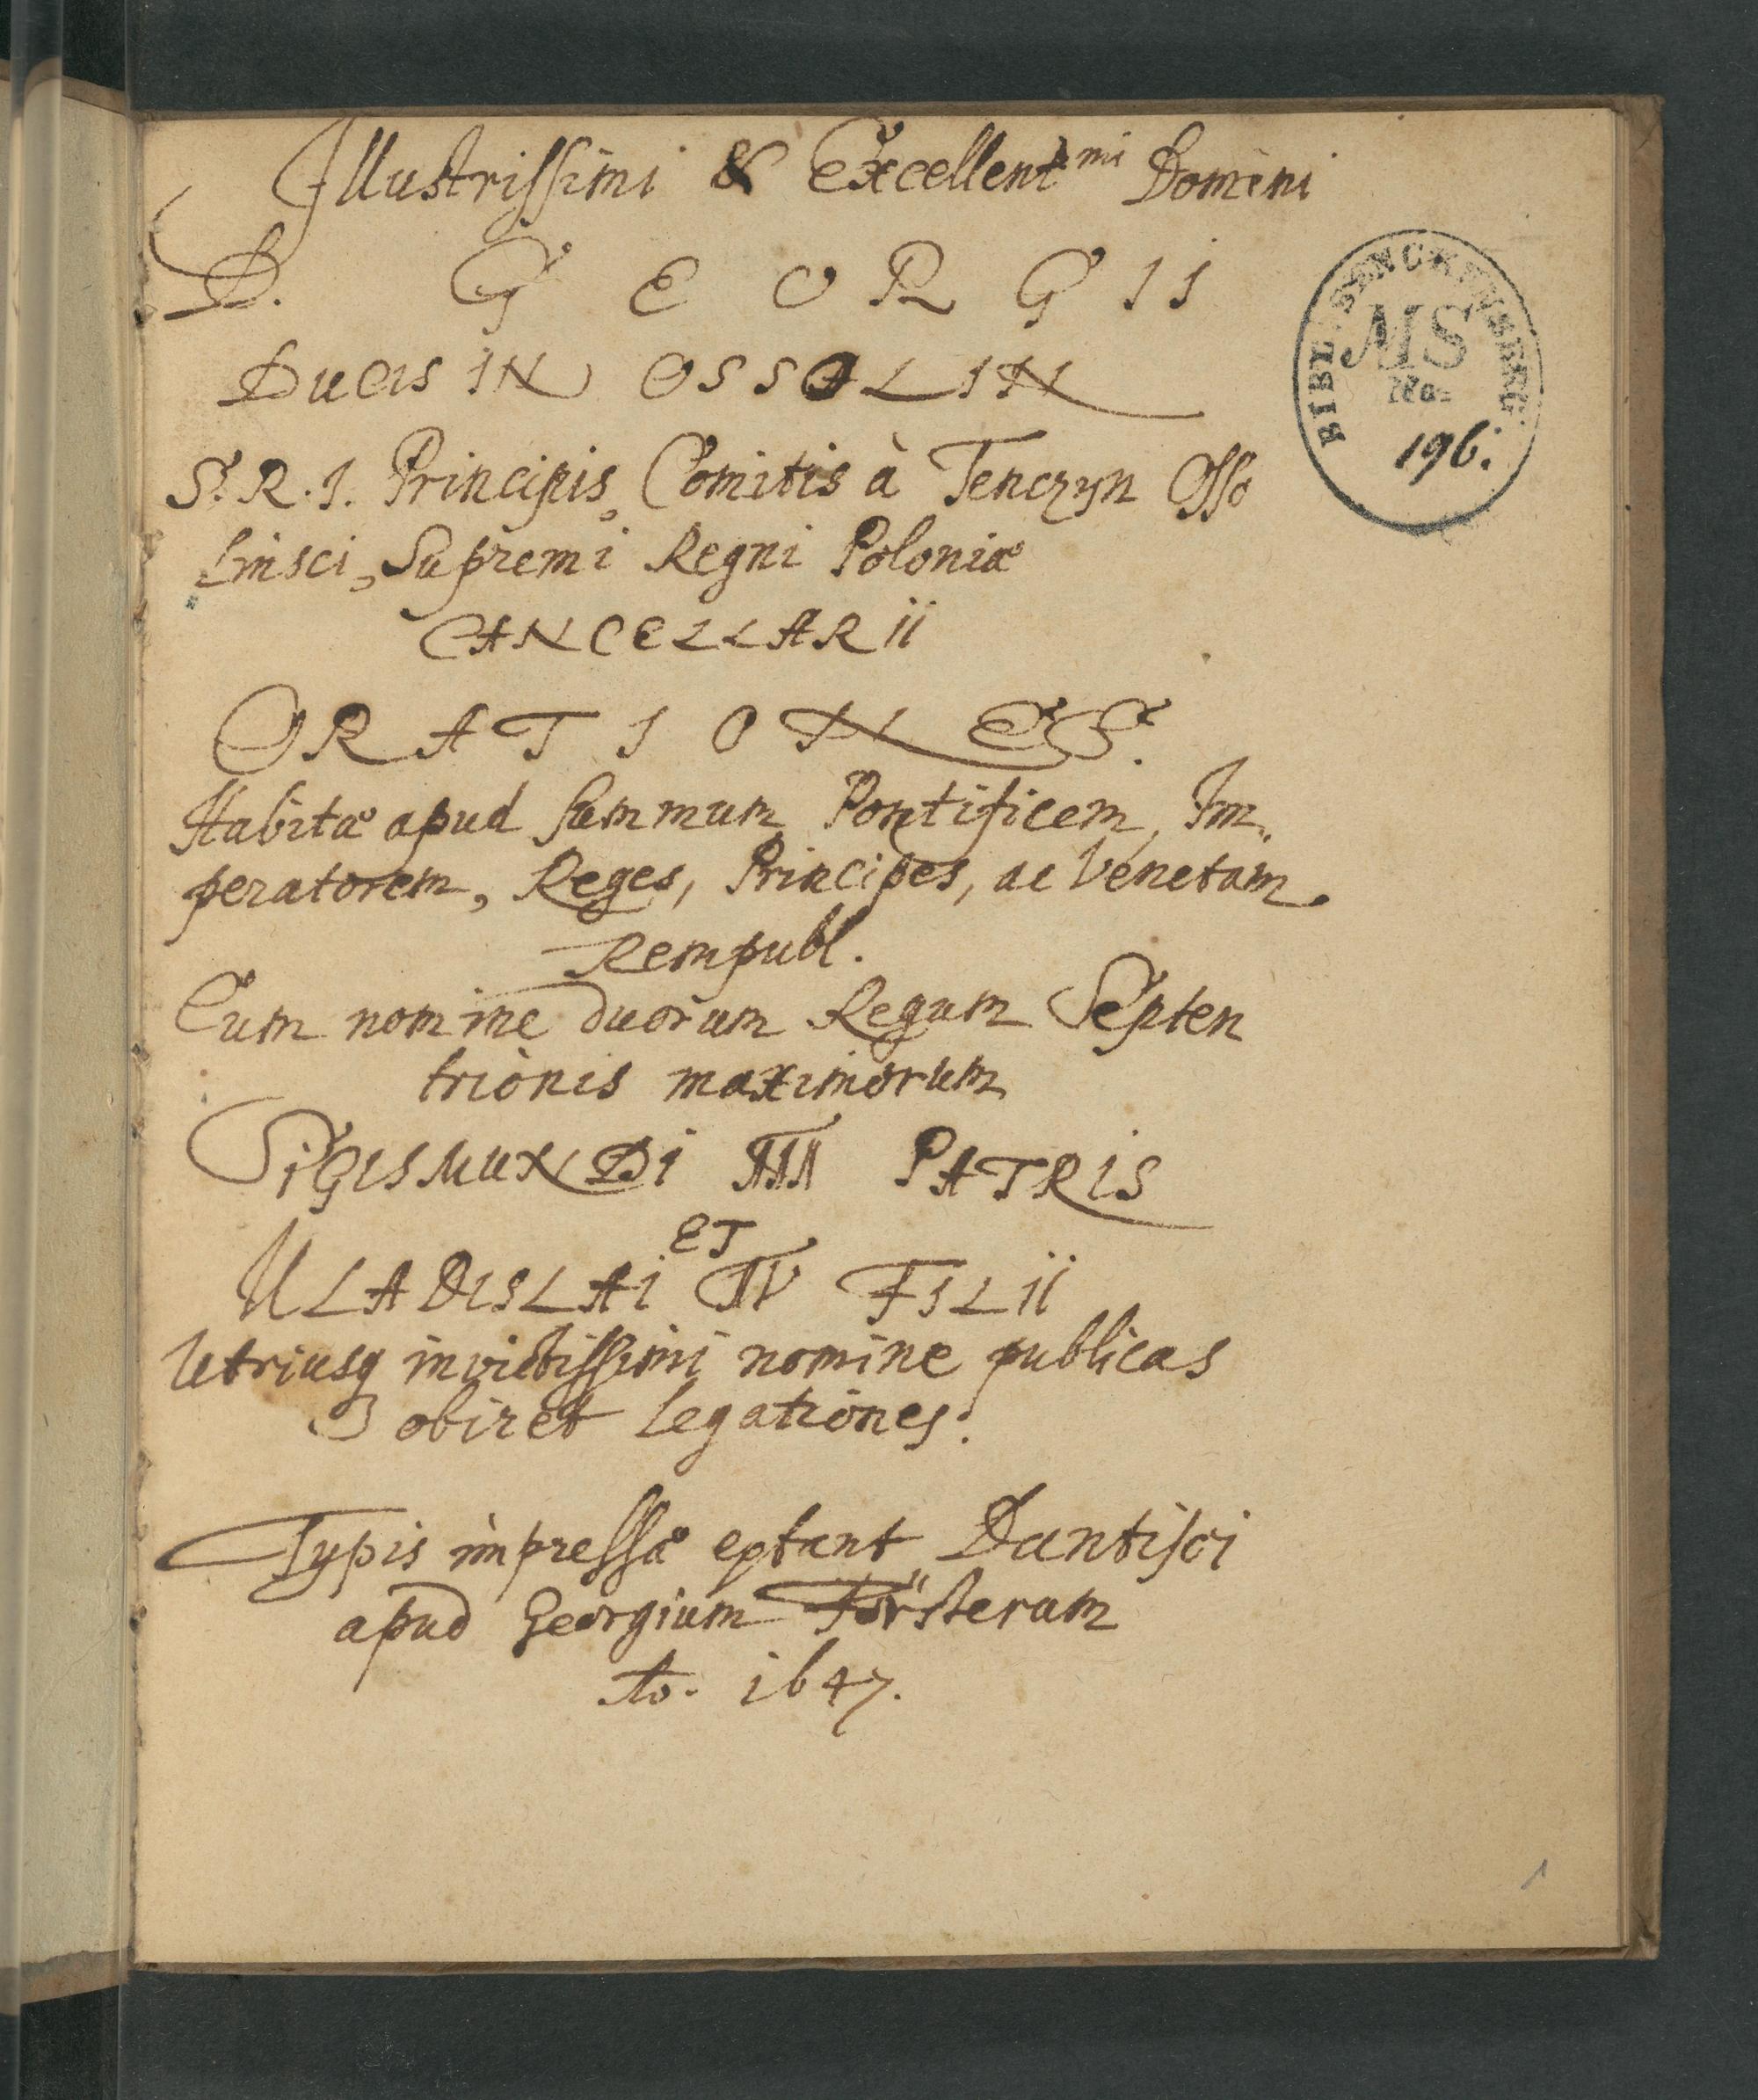 Illustrissimi & Excellent mi Domini
D. GEORGII
Ducis IN OSSOLIN
S. R. I. Principis, Comitis à Tenczyn Osso
linsci, Supremi Regni Poloniæ
CANCELLARii
ORATIONES.
Habitæ apud summum Pontificem, Im,,
peratorem, Reges, Principes, ac Venetam
Rempubl.
Cum nomine duorum Regum Septen
trionis maximorum
SiGISMUNDi III PATRIS
ET
ULADISLAi IV FILii
Utriusq invictissimi nomine publicas
obiret legationes.
Typis impressæ extant Dantisci
apud Georgium Försterum
Ao. 1647.
BIBL. SENCKENBERG.
MS
196.
1